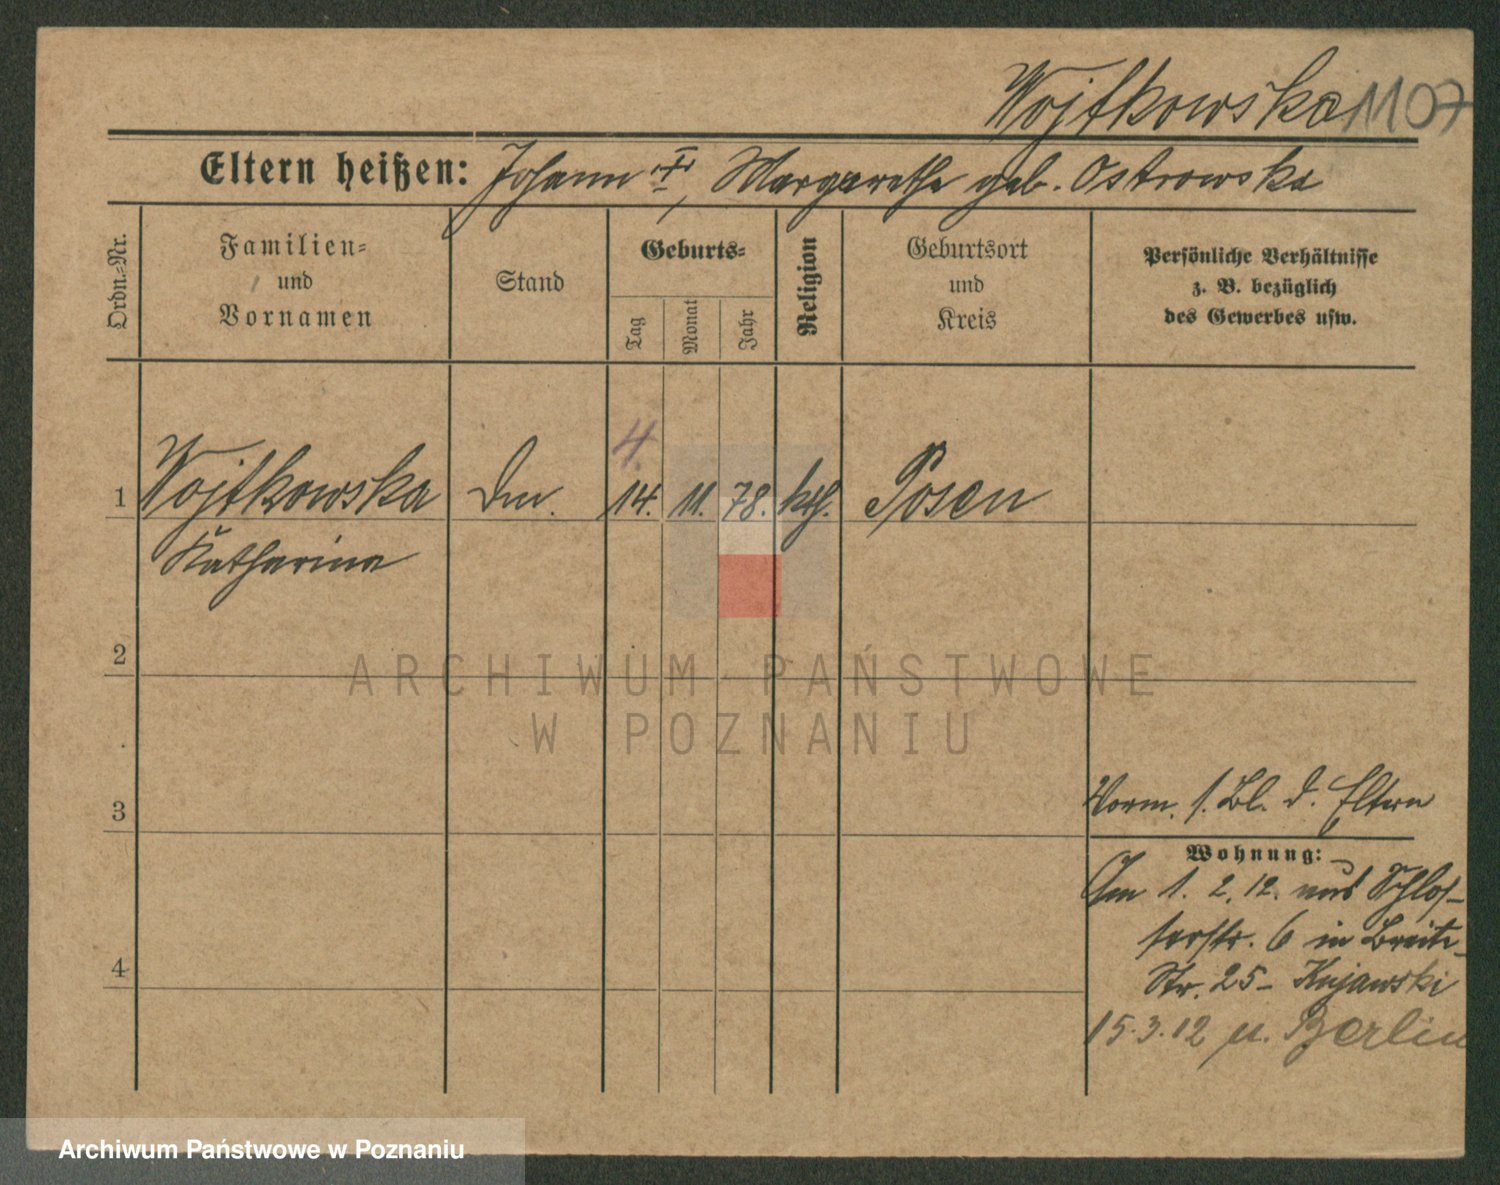 Wojtkowska 1107
Eltern heißen: Johann †, Margarethe geb. Ostrowska
Ordn.-Nr.
Familien-
und
Vornamen
Stand
Geburts-
Tag
Monat
Jahr
Religion
Geburtsort
und
Kreis
Persönliche Verhältnisse
z. B. bezüglich
des Gewerbes usw.
4.
1 Wojtkowska 14. 11. 78. kth. Posen
Katharina
2
ARCHIWUM PAŃSTWOWE
W POZNANIU
3
Vorm. s. Bl. d. Eltern
Wohnung:
Am 1. 2. 12. aus Schlos-
serstr. 6 in Breite-
Str. 25 - Kujawski
4
15.3.12 n. Berlin
Archiwum Państwowe w Poznaniu